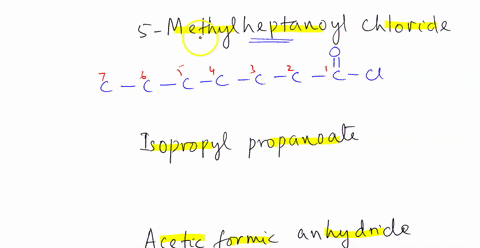 5-Methylheptanoyl chloride
O
7 6 5 4 3 2 1
C – C – C – C – C – C – C – Cl
Isopropyl propanoate
Acetic formic anhydride